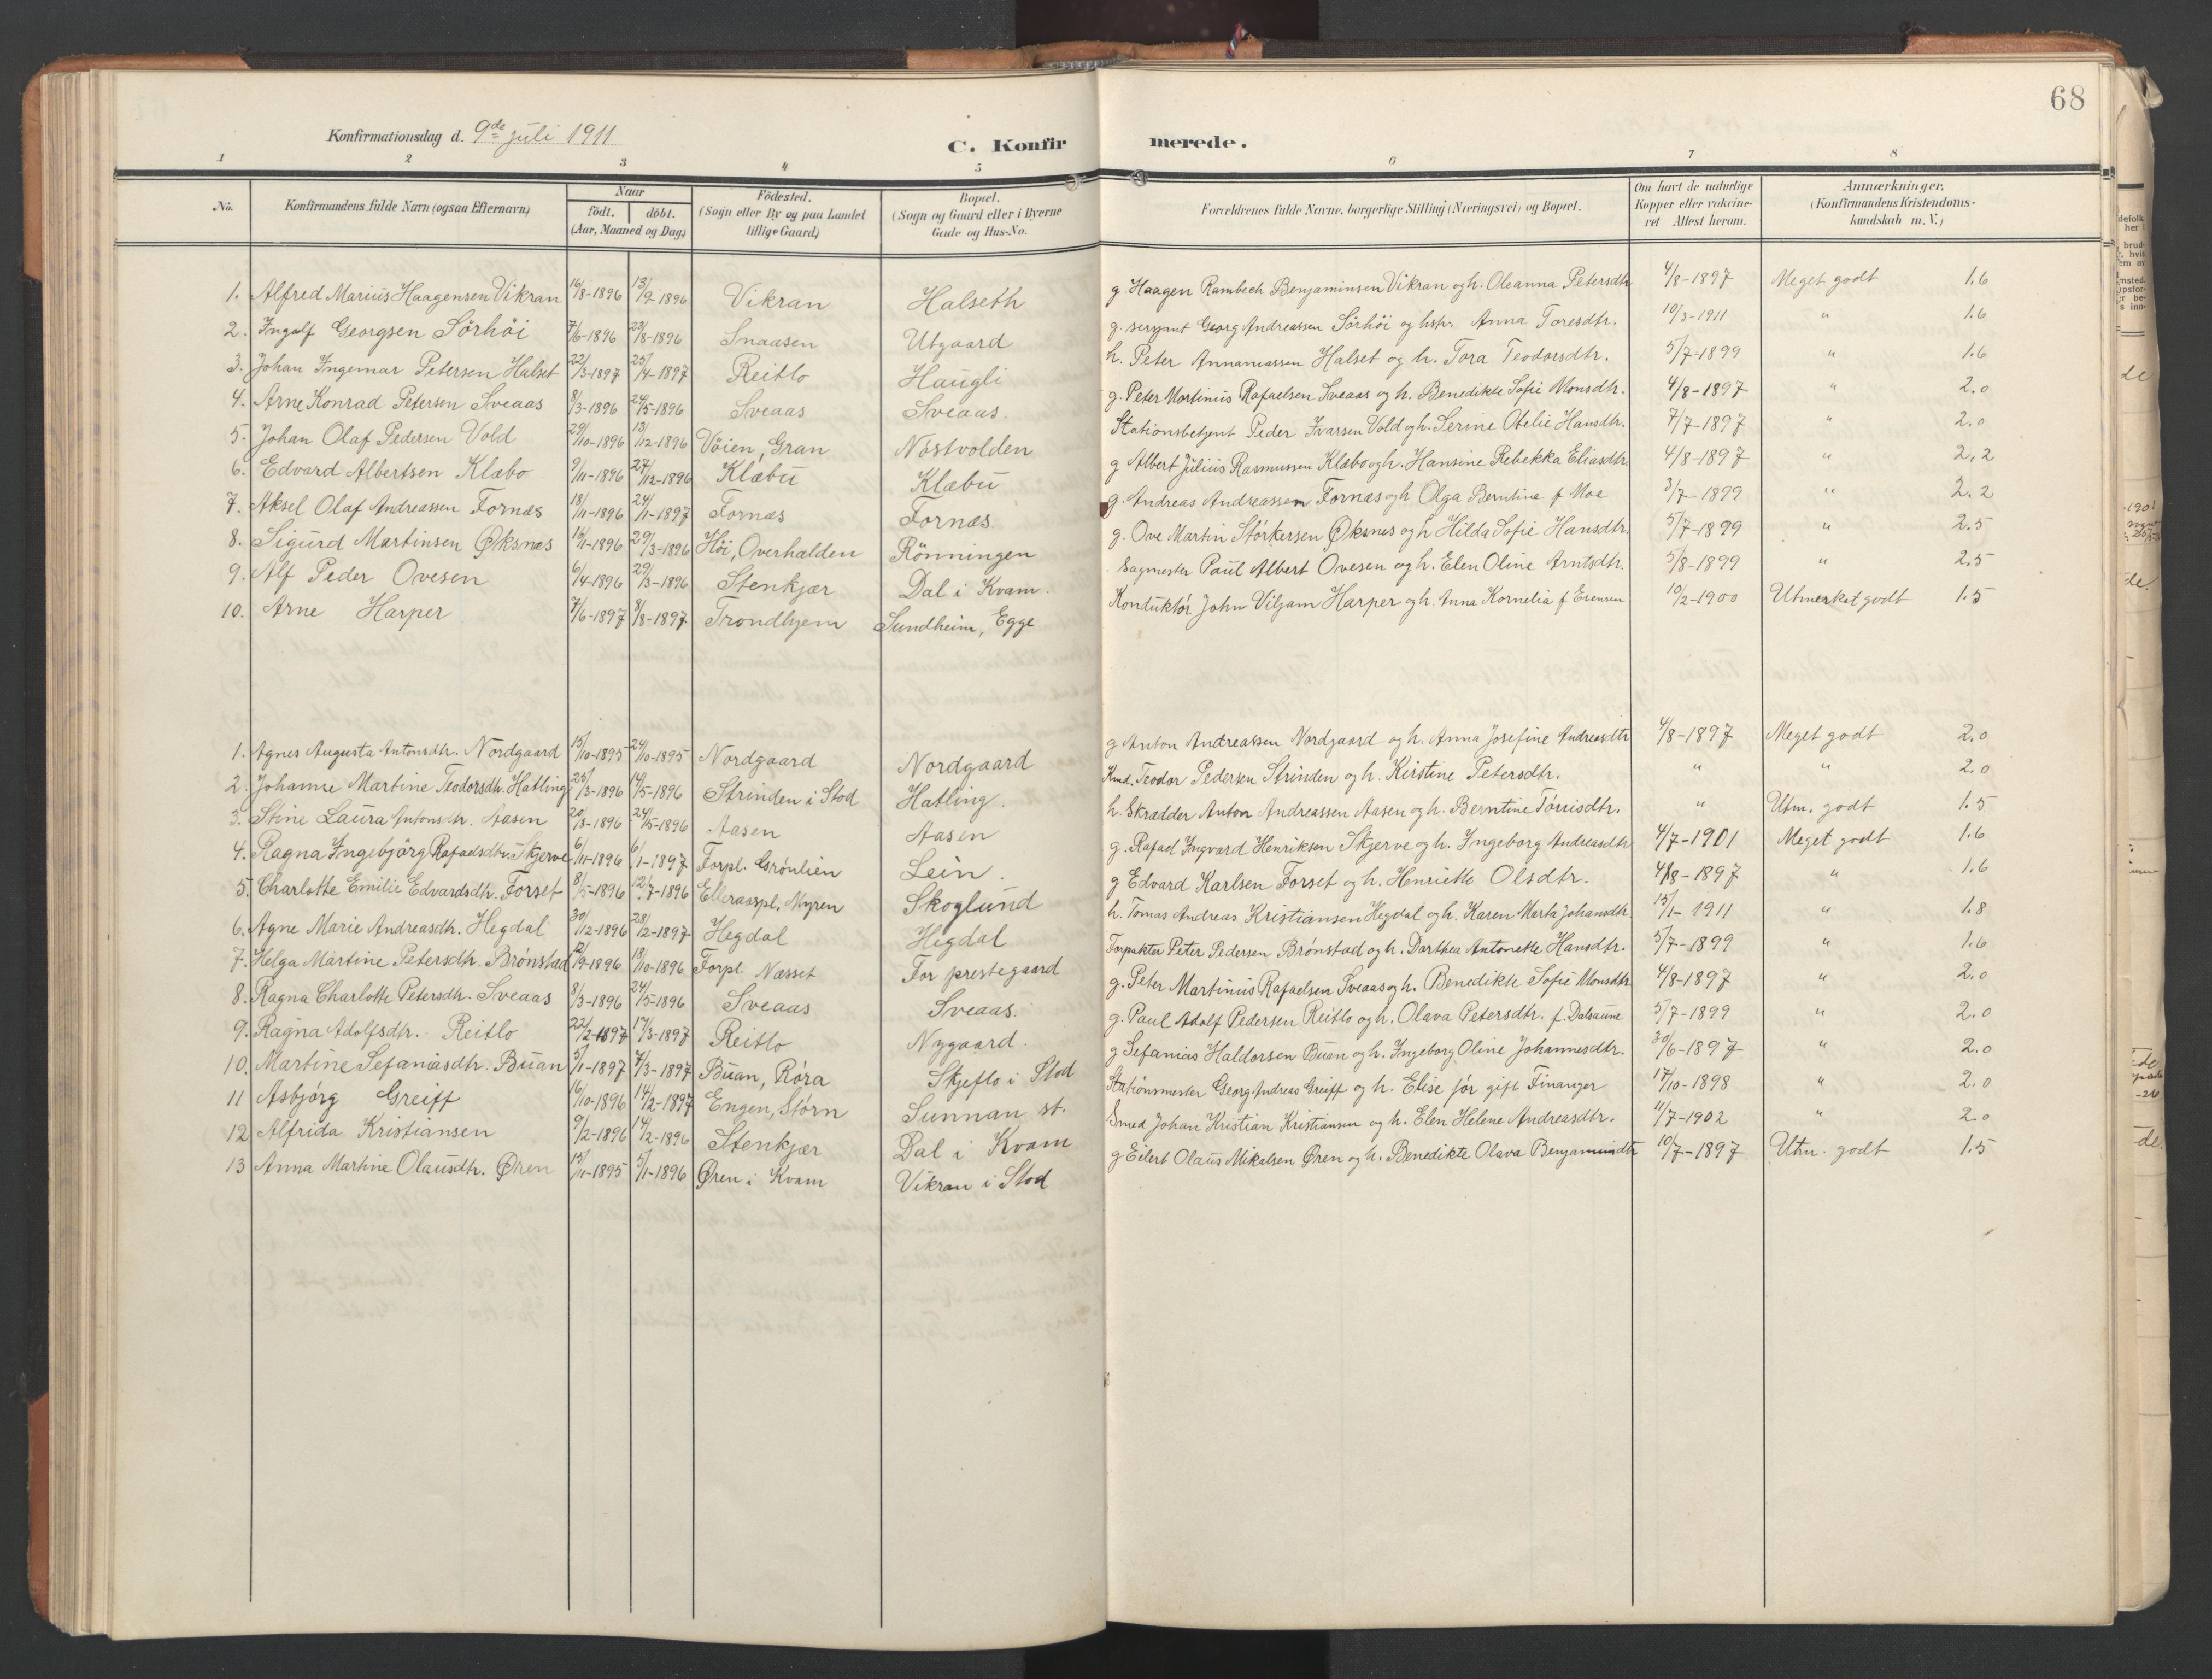 68
Konfirmationsdag d. 9de juli 1911
C. Konfirmerede.
1 2 3 4 5 6 7 8
No. Konfirmandens fulde Navn (ogsaa Efternavn) Naar födt. döbt. (Aar, Maaned og Dag) Födested. (Sogn eller By og paa Landet tillige Gaard) Bopæl. (Sogn og Gaard eller i Byerne Gade og Hus-No. Forældrenes fulde Navne, borgerlige Stilling (Næringsvei) og Bopæl. Om havt de naturlige Kopper eller vakcineret Attest herom. Anmærkninger. (Konfirmandens Kristendomskundskab m. V.)
1. Alfred Marius Haagensen Vikran 16/8-1896 13/9 1896 Vikran Halseth g. Haagen Rambech Benjaminsen Vikran og h. Oleanna Petersdtr 4/8-1897 Meget godt 1.6
2. Ingolf Georgsen Sörhöi 7/6-1896 23/8-1896 Snaasen Utgaard g. sersjant Georg Andreassen Sörhöi og hstr. Anna Toresdtr. 10/3-1911 " 1.6
3. Johan Ingemar Petersen Halset 22/3-1897 25/4-1897 Reitlo Haugli h. Peter Annaniassen Halset og h. Tora Teodorsdtr. 5/7-1899 " 1.6
4. Arne Konrad Petersen Sveaas 8/3-1896 24/5-1896 Sveaas Sveaas. g. Peter Martinius Rafaelsen Sveaas og h. Benedikte Sofie Monsdtr. 4/8-1897 " 2.0
5. Johan Olaf Pedersen Vold 29/10-1896 13/12-1896 Vöien, Gran Nöstvolden Stationsbetjent Peder Ivarsen Vold og h. Serine Otelie Hansdtr. 7/7-1897 " 2.0
6. Edvard Albertsen Klæbo 9/11-1896 27/12-1896 Klæbu Klæbu g Albert Julius Rasmussen Klæbo og h. Hansine Rebekka Eliasdtr. 4/8-1897 " 2.2
7. Aksel Olaf Andreassen Fornæs 18/11-1896 24/1-1897 Fornæs Fornæs. g. Andreas Andreassen Fornæs og h Olga Berntine f Moe 3/7-1899 " 2.2
8. Sigurd Martinsen Øksnæs 16/1-1896 29/3-1896 Höi, Overhalden Rönningen g. Ove Martin Störkersen Øksnes og h Hilda Sofie Hansdtr. 5/7-1899 " 2.5
9. Alf Peder Ovesen 6/4-1896 29/3-1896 Stenkjær Dal i Kvam. Sagmester Paul Albert Ovesen og h. Elen Oline Arntsdtr. 5/8-1899 " 2.5
10. Arne Harper 7/6-1897 8/8-1897 Trondhjem Sundheim, Egge Konduktör John Viljam Harper og h. Anna Kornelia f 10/2-1900 Utmerket godt 1.5
1. Agnes Augusta Antonsdtr. Nordgaard 15/10-1895 24/10-1895 Nordgaard Nordgaard g Anton Andreassen Nordgaard og h. Anna Josefine Andreasdtr 4/8-1897 Meget godt 2.0
2. Johanne Martine Teodorsdtr. Hatling 25/3-1896 14/5-1896 Strinden i Stod Hatling. Kmd. Teodor Pedersen Strinden og h. Kirstine Petersdtr. " " 2.0
3. Stine Laura Antonsdtr. Aasen 20/3-1896 24/5-1896 Aasen Aasen h. Skrædder Anton Andreassen Aasen og h. Berntine Törrisdtr. " Utm. godt 1.5
4. Ragna Ingebjörg Rafaelsdtr. Skjerve 6/11-1896 6/1-1897 Forpl. Grönlien Lein. g. Rafael Ingvard Henriksen Skjerve og h. Ingeborg Andreasdtr 4/7-1901 Meget godt 1.6
5. Charlotte Emilie Edvardsdtr. Forset 8/5-1896 12/7-1896 Elleraaspl. Myren Skoglund g Edvard Karlsen Forset og h. Henriette Olsdtr. 4/8-1897 " 1.6
6. Agne Marie Andreasdtr. Hegdal 30/12-1896 28/2-1897 Hegdal Hegdal h. Tomas Andreas Kristiansen Hegdal og h. Karen Marta Johansdtr 15/1-1911 " 1.8
7. Helga Martine Petersdtr. Brönstad 12/9-1896 18/10-1896 Forpl. Næsset For prestegaard Forpakter Peter Pedersen Brönstad og h. Dorthea Antonette Hansdtr. 5/7-1899 " 1.6
8. Ragna Charlotte Petersdtr. Sveaas 8/3-1896 24/5-1896 Sveaas Sveaas. g. Peter Martinius Rafaelsen Sveaas og h. Benedikte Sofie Monsdtr. 4/8-1897 " 2.0
9. Ragna Adolfsdtr. Reitlo 22/2-1897 17/3-1897 Reitlo Nygaard. g. Paul Adolf Pedersen Reitlo og h. Olava Petersdtr. f. Dalsaune 5/7-1899 " 2.0
10. Martine Sefaniasdtr. Buan 3/1-1897 7/3-1897 Buan, Röra Skjeflo i Stod g Sefanias Haldorsen Buan og h. Ingeborg Oline Johannesdtr. 30/6-1897 " 2.0
11 Asbjörg Greiff 16/10-1896 14/2-1897 Engen, Störn Sunnan st. Stationsmester Georg Andreas Greiff og h. Elise för gift Finanger 17/10-1898 " 2.0
12 Alfrida Kristiansen 9/2-1896 14/2-1896 Stenkjær Dal i Kvam Smed Johan Kristian Kristiansen og h. Elen Helene Andreasdtr. 11/7-1902 " 2.0
13 Anna Martine Olausdtr. Øren 15/11-1895 5/1-1896 Øren i Kvam Vikran i Stod g Eilert Olaus Mikalsen Øren og h. Benedikte Olava Benjaminsdtr 10/7-1897 Utm. godt 1.5